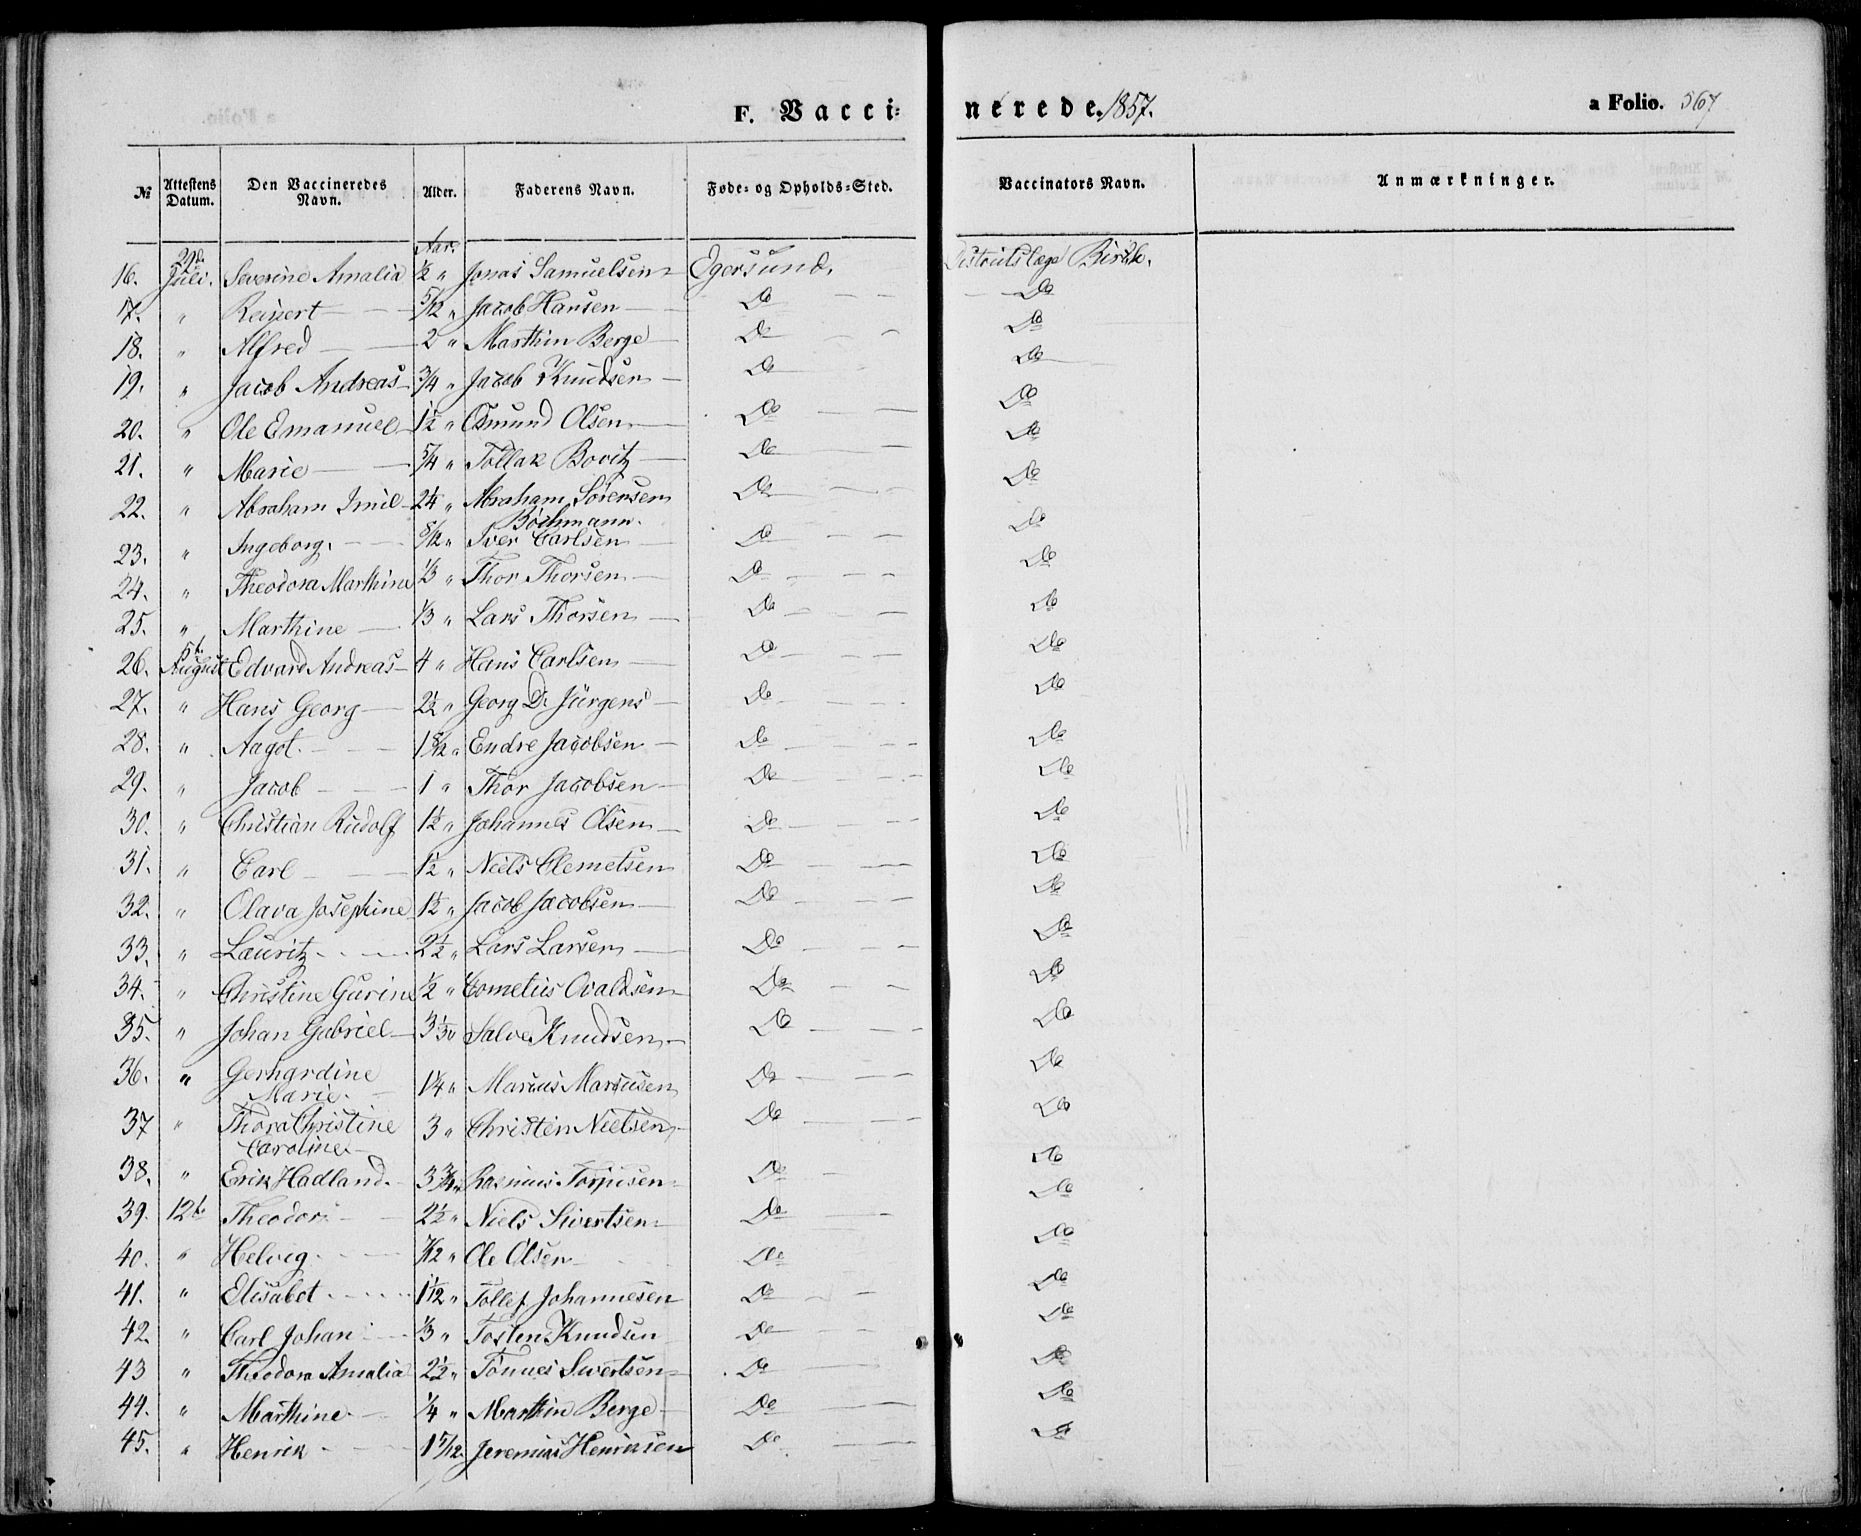 F. Vacci-nerede. 1857. a Folio. 567
№ Attestens Datum. Den Vaccineredes Navn. Alder. Faderens Navn. Føde- og Opholds-Sted. Vaccinators Navn. Anmærkninger.
Aar.
16. 29d. Juli. Severine Amalia ½ " Jonas Samuelsen Egersund. Districtslæge Birch.
17. " Reinert 5/12 " Jacob Hansen Do Do
18. " Alfred 2 " Marthin Berge Do Do
19. " Jacob Andreas 3/4 " Jacob Knudsen Do Do
20. " Ole Emanuel 1½ " Osmund Olsen Do Do
21. " Marie 5/4 " Tollak Bovitz Do Do
22. " Abraham Imil 2¼ " Abraham Sørensen Do Do
Bøchmann.
23. " Ingeborg. 8/12 " Iver Carlsen Do Do
24. " Theodora Marthine 1/3 " Thor Thorsen Do Do
25. " Marthine 1/3 " Lars Thorsen Do Do
26. 5t. August Edvard Andreas 4 " Hans Carlsen Do Do
27. " Hans Georg 2½ " Georg D. Jürgens Do Do
28. " Aagot. 1 8/12 " Endre Jacobsen Do Do
29. " Jacob 1 " Thor Jacobsen Do Do
30. " Christian Rudolf 1½ " Johannes Olsen Do Do
31. " Carl 1½ " Niels Clemetsen Do Do
32. " Olava Josephine 1½ " Jacob Jacobsen Do Do
33. " Lauritz 2½ " Lars Larsen Do Do
34. " Christine Gurine ½ " Cornelius Ovaldsen Do Do
35. " Johan Gabriel 3 Salve Knudsen Do Do
36. " Gerhardine 1¼ " Marcus Marcusen Do Do
Marie.
37 " Thora Christine 3 " Christen Nielsen Do Do
Caroline
38. " Erik Hadland. 3¾ " Rasmus Torjusen Do Do
39. 12te Theodor 2½ " Niels Sivertsen Do Do
40. " Helvig. 7/12 " Ole Olsen Do Do
41. " Elisabet 1 1/12 " Tollef Johannesen Do Do
42 " Carl Johan 1/3 " Tosten Knudsen Do Do
43 " Theodora Amalia 2½ " Tønnes Sivertsen Do Do
44. " Marthine. ¼ " Marthin Berge Do Do
45. " Henrik 1 5/12. Jeremias Henriksen Do Do